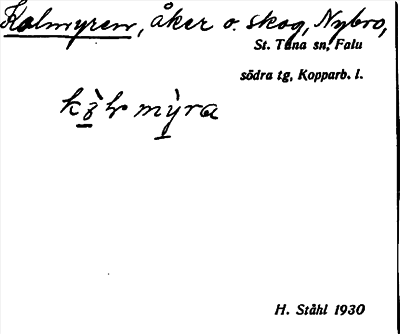 Kolmyren, åker o. skog, Nybro,
St. Tuna sn, Falu
södra tg, Kopparb. l.
mỳra
H. Ståhl 1930